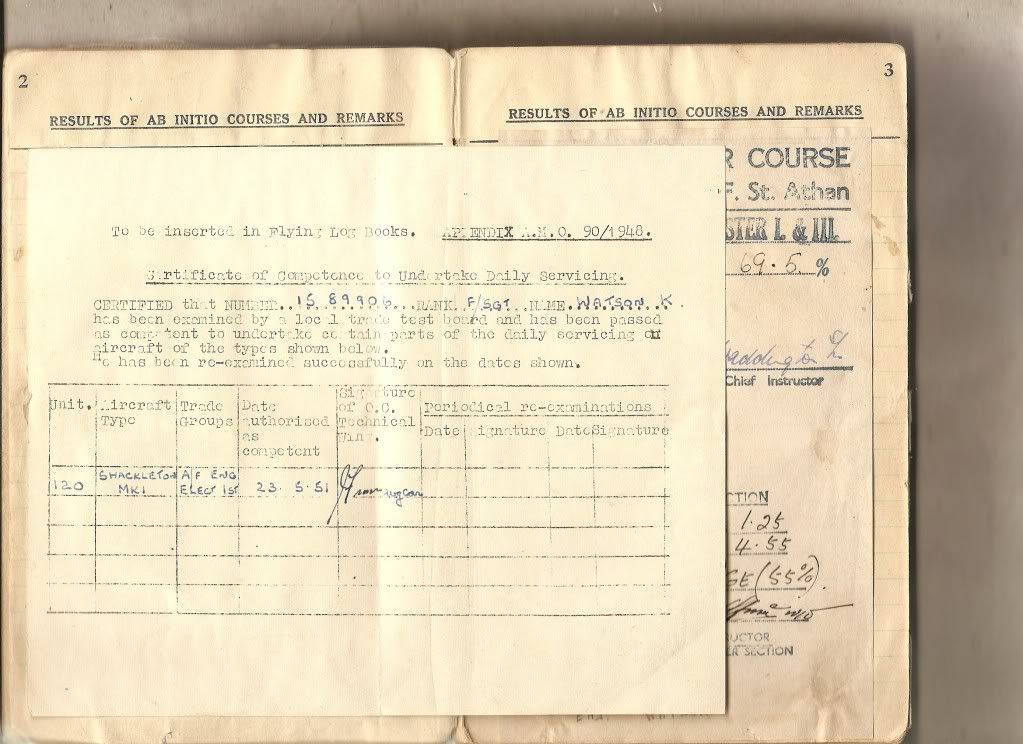 2
RESULTS OF AB INITIO COURSES AND REMARKS
To be inserted in Flying Log Books. APPENDIX A.M.O. 90/1948.
Certificate of Competence to Undertake Daily Servicing.
CERTIFIED that NUMBER...1589906...RANK F/SGT NAME WATSON K.
has been examined by a local trade test board and has been passed
as competent to undertake certain parts of the daily servicing of
aircraft of the types shown below.
He has been re-examined successfully on the dates shown.
Unit. Aircraft Type Trade Groups Date authorised as competent Signature of O.C. Technical Wing. Periodical re-examinations
Date Signature Date Signature
120 SHACKLETON MK1 A/F ENG ELECT 1ST 23.5.51
3
RESULTS OF AB INITIO COURSES AND REMARKS
R COURSE
F. St. Athan
STER I. & III.
69.5 %
Chief Instructor
CTION
1.25
4.55
GE (55%).
UCTOR
ER SECTION